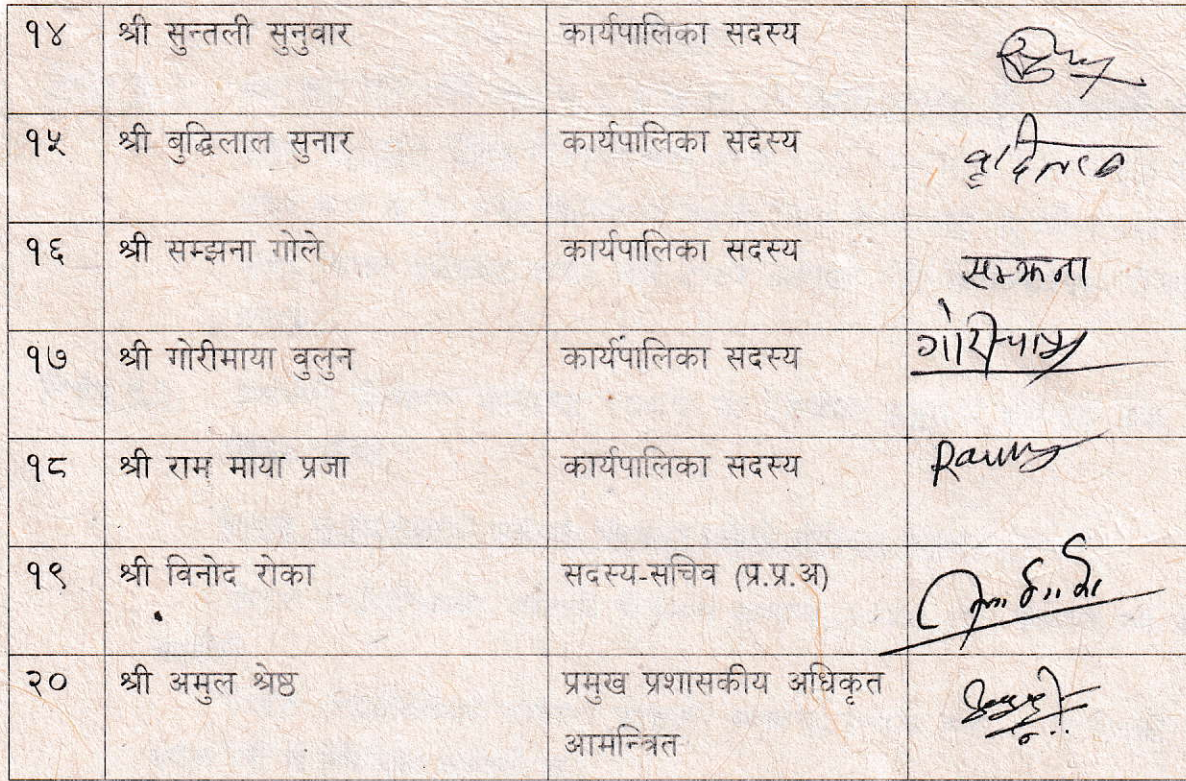 १४ श्री सुन्तली सुनुवार कार्यपालिका सदस्य
१५ श्री बुद्धिलाल सुनार कार्यपालिका सदस्य
१६ श्री सम्झना गोले कार्यपालिका सदस्य सम्झना
१७ श्री गोरीमाया वुलुन कार्यपालिका सदस्य
१८ श्री राम माया प्रजा कार्यपालिका सदस्य
१९ श्री विनोद रोका सदस्य-सचिव (प्र.प्र.अ)
२० श्री अमुल श्रेष्ठ प्रमुख प्रशासकीय अधिकृत
आमन्त्रित